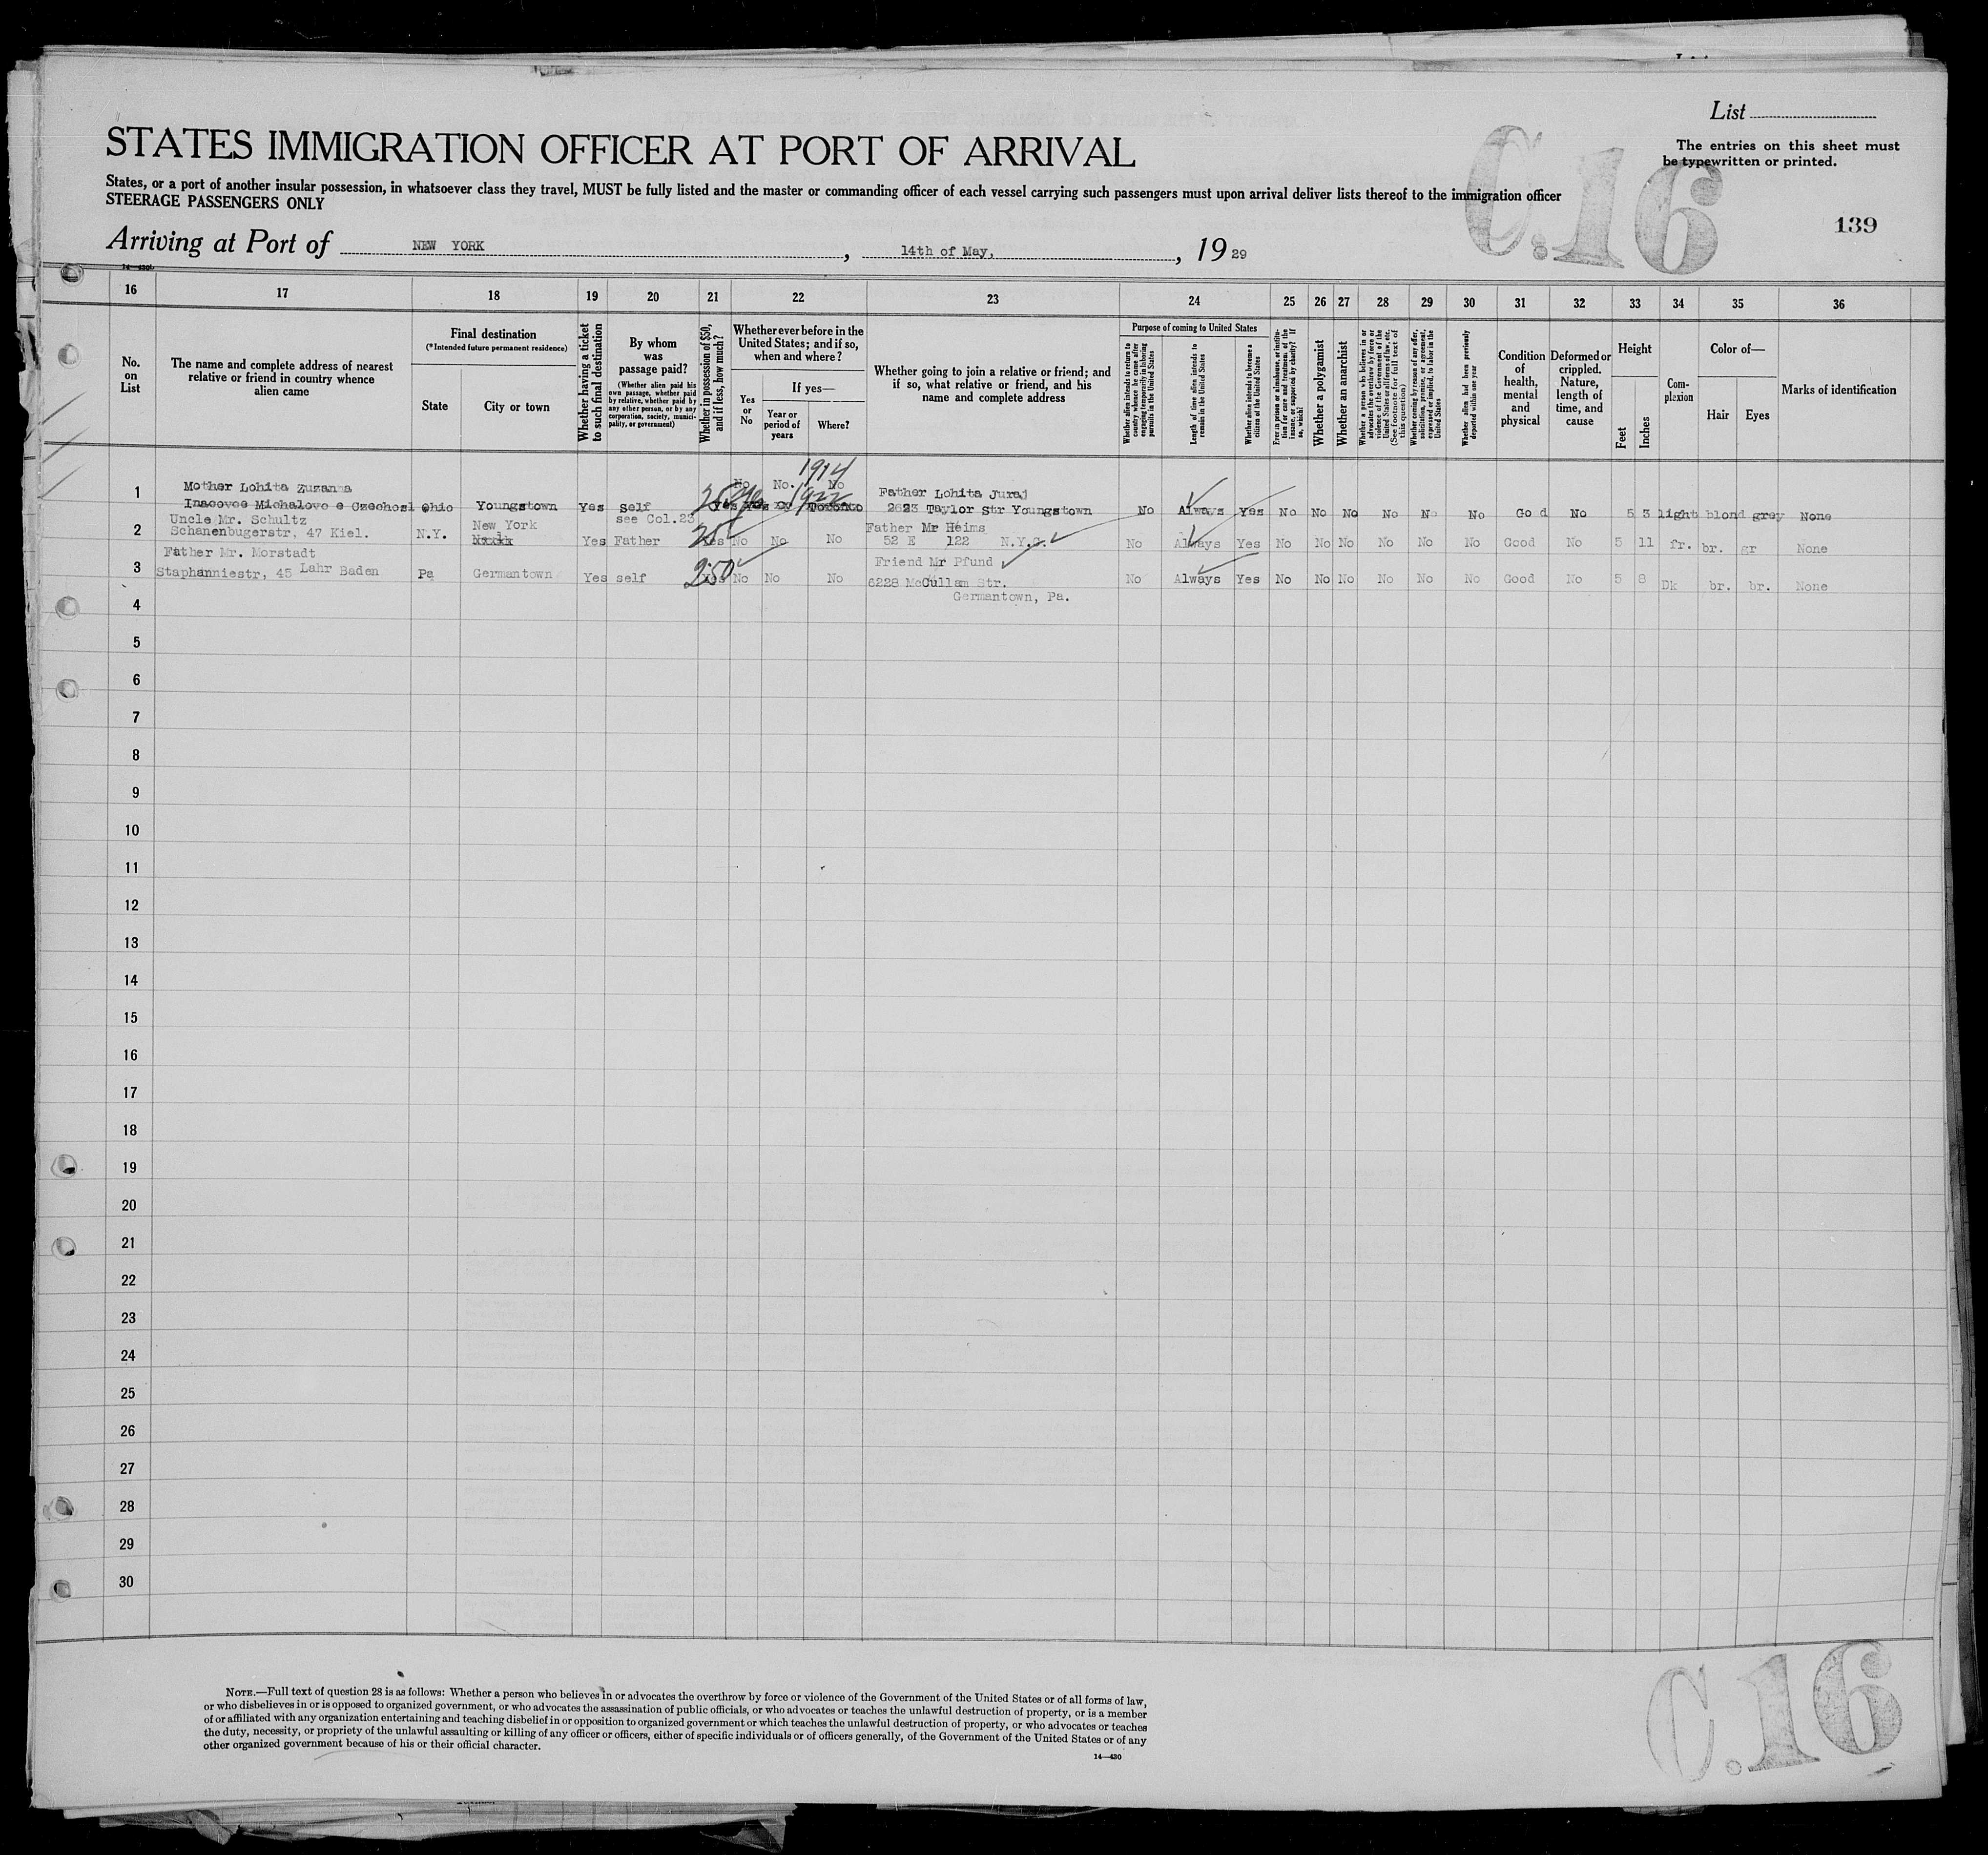 List
The entries on this sheet must
be typewritten or printed.
STATES IMMIGRATION OFFICER AT PORT OF ARRIVAL
States, or a port of another insular possession, in whatsoever class they travel, MUST be fully listed and the master or commanding officer of each vessel carrying such passengers must upon arrival deliver lists thereof to the immigration officer
STEERAGE PASSENGERS ONLY
C.16
139
Arriving at Port of NEW YORK, 14th of May, 1929
14—430b
16 17 18 19 20 21 22 23 24 25 26 27 28 29 30 31 32 33 34 35 36
No. on List
The name and complete address of nearest relative or friend in country whence alien came
Final destination
(*Intended future permanent residence)
State
City or town
Whether having a ticket to such final destination
By whom was passage paid?
(Whether alien paid his own passage, whether paid by relative, whether paid by any other person, or by any corporation, society, municipality, or government)
Whether in possession of $50, and if less, how much?
Whether ever before in the United States; and if so, when and where?
Yes or No
If yes—
Year or period of years
Where?
Whether going to join a relative or friend; and if so, what relative or friend, and his name and complete address
Purpose of coming to United States
Whether alien intends to return to country whence he came after engaging temporarily in laboring pursuits in the United States
Length of time alien intends to remain in the United States
Whether alien intends to become a citizen of the United States
Ever in prison or almshouse, or institution for care and treatment of the insane, or supported by charity? If so, which?
Whether a polygamist
Whether an anarchist
Whether a person who believes in or advocates the overthrow by force or violence of the Government of the United States or all forms of law, etc. (See footnote for full text of this question)
Whether coming by reason of any offer, solicitation, promise, or agreement, expressed or implied, to labor in the United States
Whether alien had been previously deported within one year
Condition of health, mental and physical
Deformed or crippled. Nature, length of time, and cause
Height
Feet
Inches
Complexion
Color of—
Hair
Eyes
Marks of identification
1914
1 Mother Lohita Zuzanna No. No. No Father Lohita Juraj
Inacovce Michalove e Czechosl Ohio Youngstown Yes self 25 Yes 1922 Toronto 2623 Taylor Str Youngstown No Always Yes No No No No No No Good No 5 3 light blond grey None
2 Uncle Mr. Schultz New York see Col.23 Father Mr Heims
Schanenbugerstr, 47 Kiel. N.Y. Yes Father 25 Yes No No No 52 E 122 N.Y.C. No Always Yes No No No No No No Good No 5 11 fr. br. gr None
3 Father Mr. Morstadt Friend Mr Pfund
Staphanniestr, 45 Lahr Baden Pa Germantown Yes self 250 Yes No No No 6228 McCullam Str. No Always Yes No No No No No No Good No 5 8 Dk br. br. None
4 Germantown, Pa.
5
6
7
8
9
10
11
12
13
14
15
16
17
18
19
20
21
22
23
24
25
26
27
28
29
30
NOTE.—Full text of question 28 is as follows: Whether a person who believes in or advocates the overthrow by force or violence of the Government of the United States or of all forms of law,
or who disbelieves in or is opposed to organized government, or who advocates the assassination of public officials, or who advocates or teaches the unlawful destruction of property, or is a member
of or affiliated with any organization entertaining and teaching disbelief in or opposition to organized government or which teaches the unlawful destruction of property, or who advocates or teaches
the duty, necessity, or propriety of the unlawful assaulting or killing of any officer or officers, either of specific individuals or of officers generally, of the Government of the United States or of any
other organized government because of his or their official character.
14—430
C.16